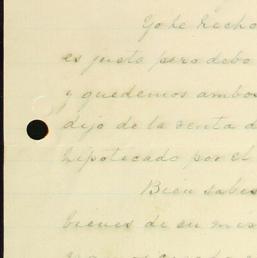 Yo he hecho
es justo pero debo
y quedemos ambos
dijo de la renta d
hipotecado por el
Bien sabes
bienes de en mis